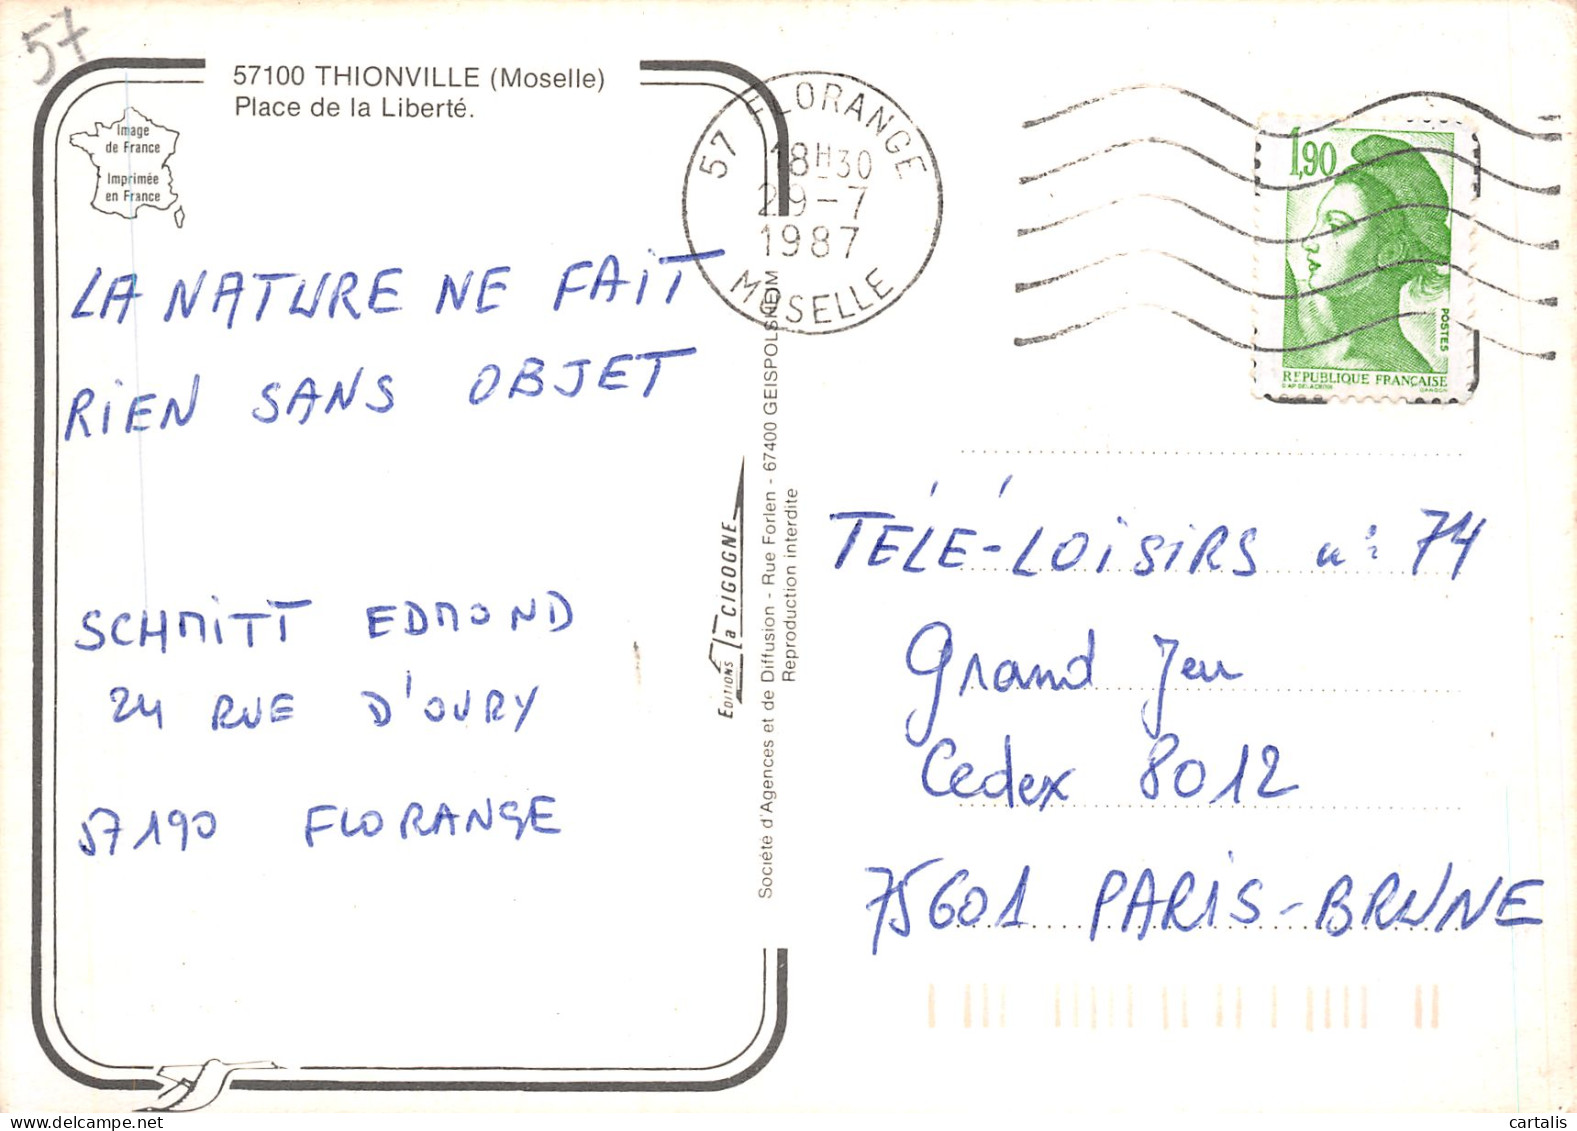 57
57100 THIONVILLE (Moselle)
Place de la Liberté.
Image
de France
Imprimée
en France
57 FLORANGE
18H30
29-7
1987
MOSELLE
1,90
POSTES
REPUBLIQUE FRANÇAISE
D'AP. DELACROIX GANDON
LA NATURE NE FAIT
RIEN SANS OBJET
SCHMITT EDMOND
24 RUE D'OURY
57190 FLORANGE
EDITIONS la CIGOGNE
Société d'Agences et de Diffusion - Rue Forlen - 67400 GEISPOLSHEIM
Reproduction interdite
TÉLÉ-LOISIRS n° 74
Grand Jeu
Cedex 8012
75601 PARIS-BRUNE
cartalis